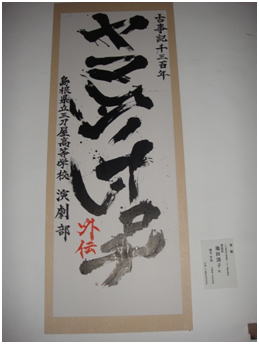 古事記千三百年
ヤマタノオロチ
外伝
島根県立三刀屋高等学校 演劇部